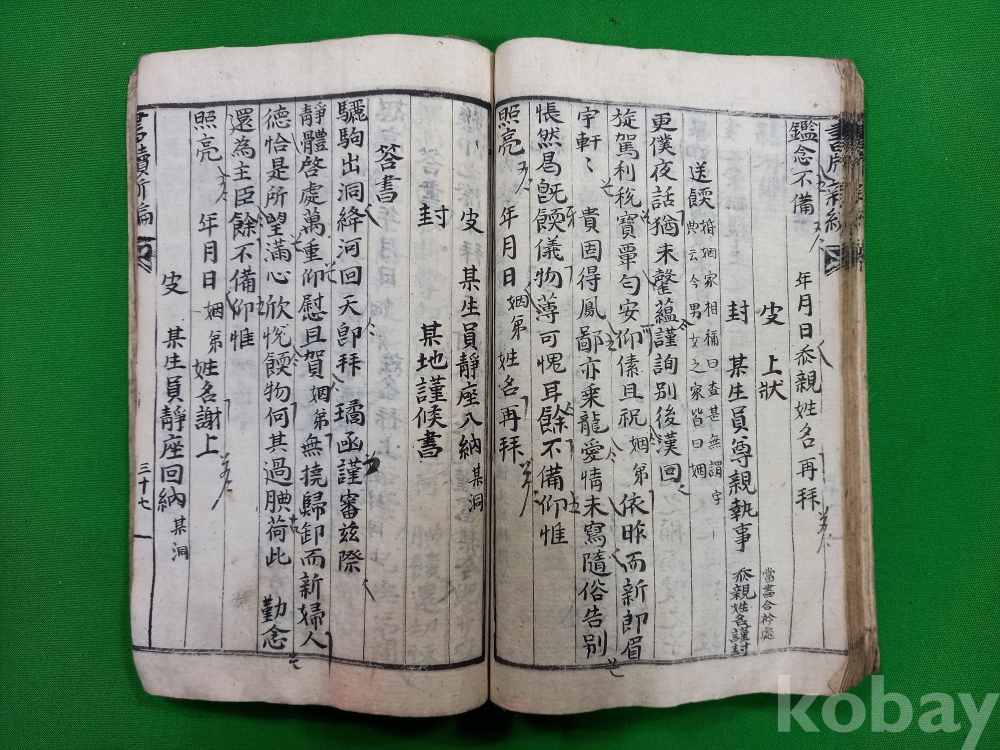 鑑念不備
年月日忝親姓名再拜
皮 上狀
封 某生員尊親執事 忝親姓名謹封
當書合衿處
送餪 婚姻家相稱曰查甚無謂字
典云今男女之家皆曰姻
更僕夜話猶未罄蘊謹詢別後漢回
旋駕利稅寶覃勻安仰傃且祝 姻弟 依昨而新郎眉
宇軒〻 貴固得鳳鄙亦乘龍愛情未寫隨俗告別
悵然曷旣餪儀物薄可愧耳餘不備仰惟
照亮 年月日 姻弟 姓名再拜
皮 某生員靜座入納 某洞
封 某地謹候書
答書
驪駒出洞絳河回天卽拜 璚函謹審玆際
靜體啓處萬重仰慰且賀 姻弟 無撓歸卸而新婦人
德恰是所望滿心欣悅餪物何其過腆荷此 勤念
還為主臣餘不備仰惟
照亮 年月日 姻弟 姓名謝上
皮 某生員靜座回納 某洞
書牘新編
三十七
kobay